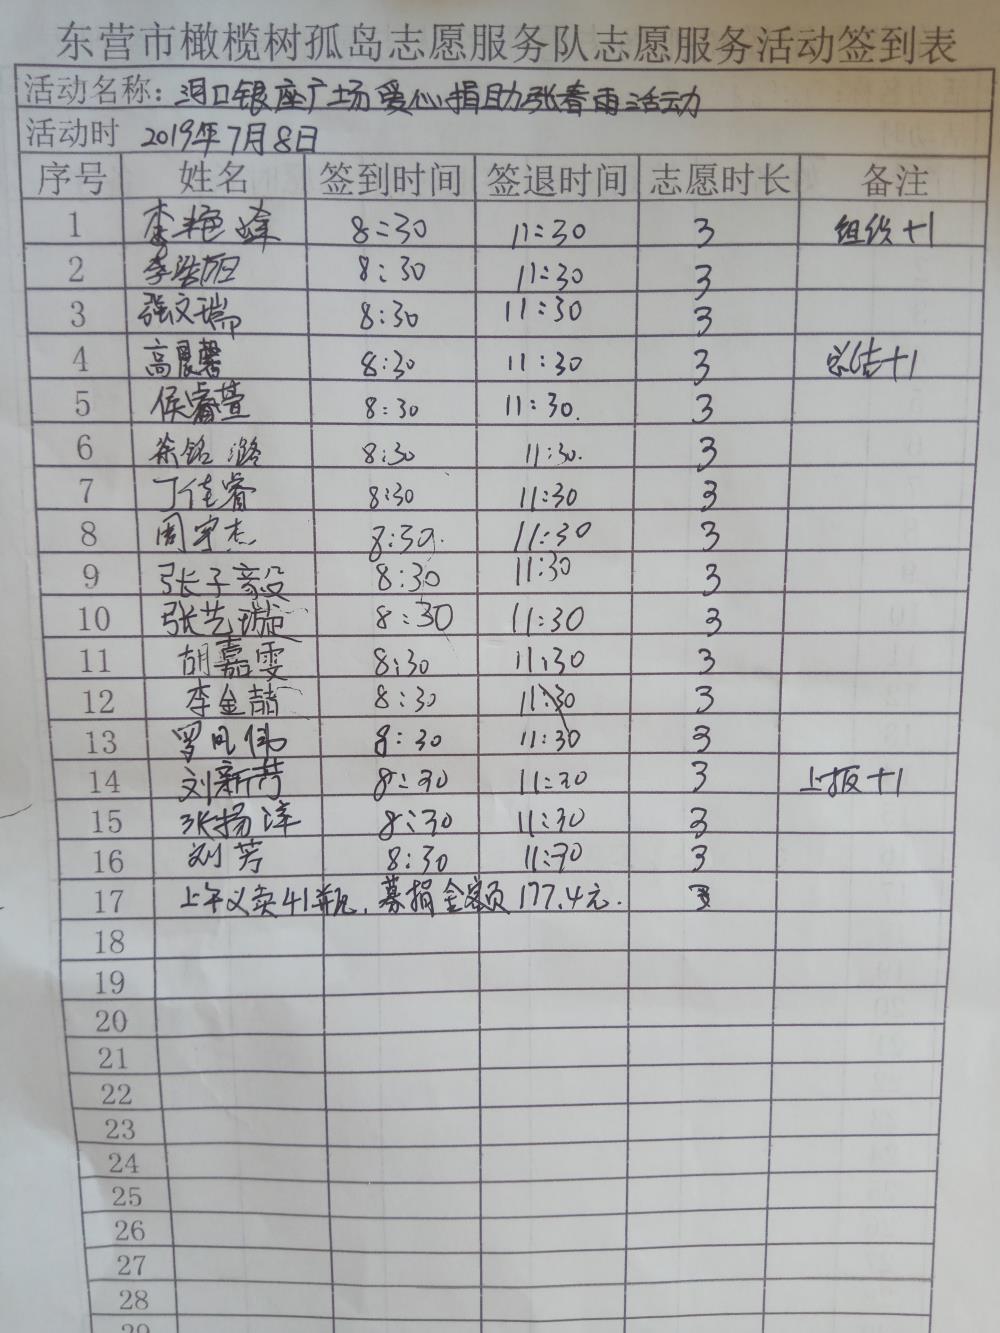 东营市橄榄树孤岛志愿服务队志愿服务活动签到表
活动名称：河口银座广场爱心捐助张春雨活动
活动时 2019年7月8日
序号 姓名 签到时间 签退时间 志愿时长 备注
1 李艳峰 8:30 11:30 3 组织+1
2 李浩 8:30 11:30 3
3 张文瑞 8:30 11:30 3
4 高晨馨 8:30 11:30 3 总结+1
5 侯睿萱 8:30 11:30. 3
6 徐铭潞 8:30 11:30. 3
7 丁佳睿 8:30 11:30 3
8 周宇杰 8:30. 11:30 3
9 张子毅 8:30 11:30 3
10 张艺璇 8:30 11:30 3
11 胡嘉雯 8:30 11:30 3
12 李金喆 8:30 11:30 3
13 罗凤伟 8:30 11:30 3
14 刘新芳 8:30 11:30 3 上报+1
15 张扬洋 8:30 11:30 3
16 刘芳 8:30 11:30 3
17 上午义卖41瓶，募捐金额177.4元. 3
18
19
20
21
22
23
24
25
26
27
28
29